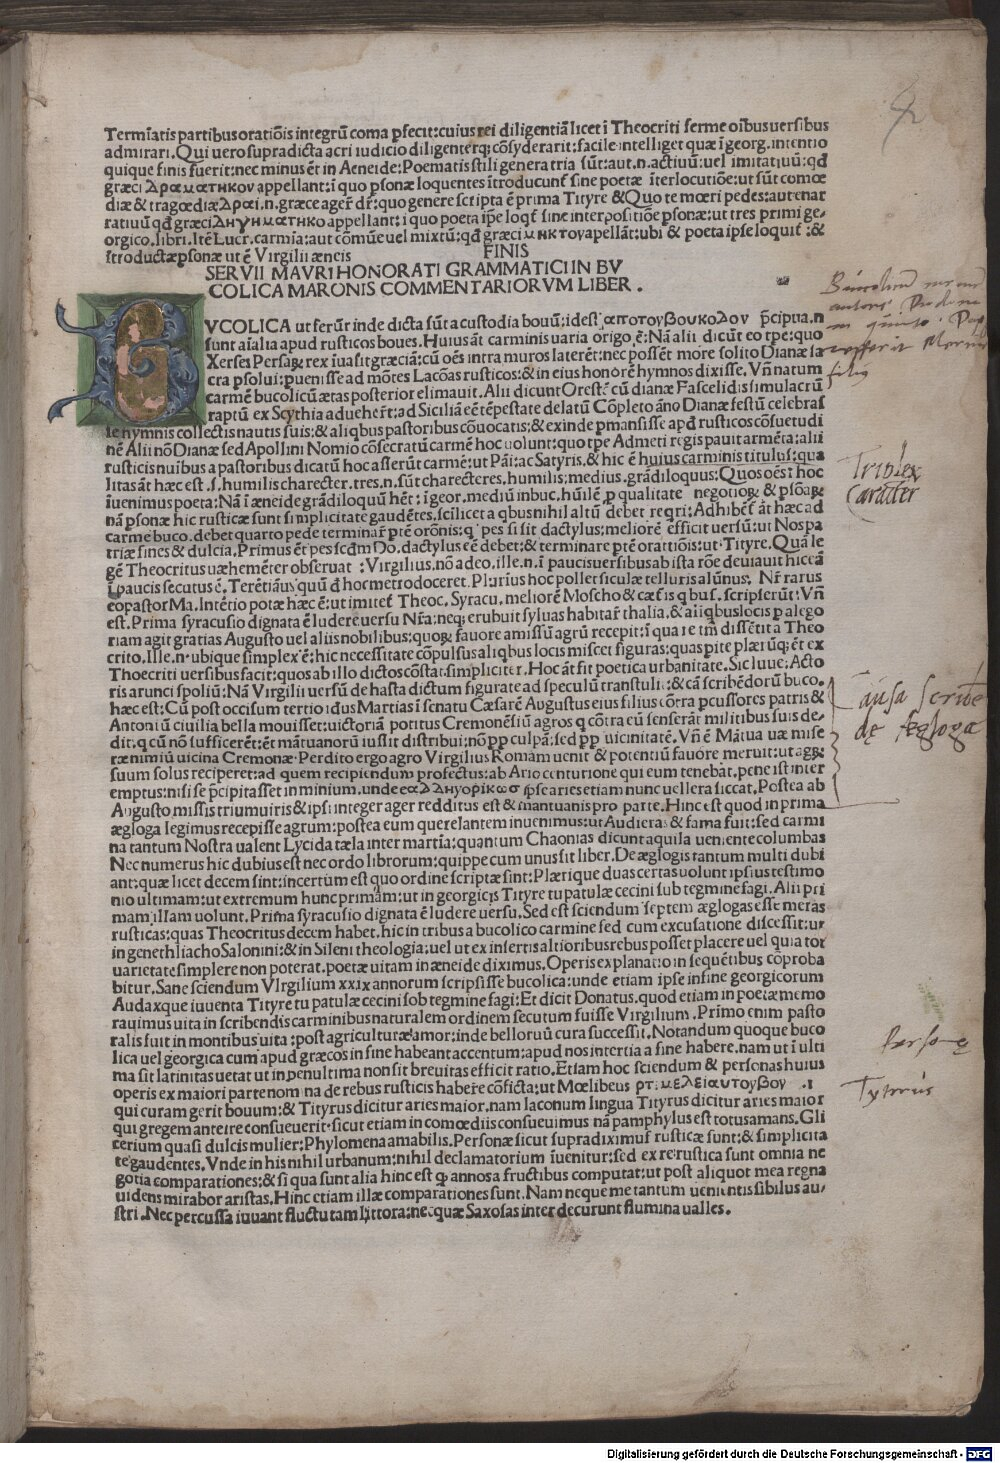 Termiatis partibus orationis integrũ coma pfecit: cuius rei diligentiã licet ĩ Theocriti ferme oĩbus uersibus
admirari. Qui uero supradicta acri iudicio diligenterq; cõsyderarit: facile intelliget quæ ĩ georg. intentio
quique finis fuerit: nec minus ẽt in Aeneide: Poematis stili genera tria sũt: aut .n. actiuũ: uel imitatiuũ: qđ
græci Δραματηκον appellant: ĩ quo psonæ loquentes ĩtroducunt sine poetæ ĩterlocutiõe: ut sũt comœ
diæ & tragœdiæ Δραι .n. græce ager dr̃: quo genere scripta ẽ prima Tityre & Quo te mœri pedes: aut enar
ratiuũ qđ græci Διηγηματηκο appellant: ĩ quo poeta ipe loqt sine interpositiõe psonæ: ut tres primi ge-
orgico. libri. Itẽ Lucr. carmĩa: aut cõmũe uel mixtũ: qđ græci μηκτου apellãt: ubi & poeta ipse loquit: &
ĩtroductæ psonæ ut ẽ Virgilii æneis FINIS
SERVII MAVRI HONORATI GRAMMATICI IN BV
COLICA MARONIS COMMENTARIORVM LIBER.
BVCOLICA ut ferũr inde dicta sũt a custodia bouũ: idest αποτουβουκολου pcipua .n
sunt aĩalia apud rusticos boues. Huius ãt carminis uaria origo ẽ: Nã alii dicũt eo tpe: quo
Xerses Persaꝝ rex ĩuasit græciã: cũ oẽs intra muros laterẽt: nec possẽt more solito Dianæ sa
cra psolui: puenisse ad mõtes Lacõas rusticos: & in eius honorẽ hymnos dixisse. Vñ natum
carmẽ bucolicũ ætas posterior elimauit. Alii dicunt Orestẽ cũ dianæ Fascelidis simulacrũ
raptũ ex Scythia adueheret: ad Siciliã eẽ tẽpestate delatũ Cõpleto ãno Dianæ festũ celebras
se hymnis collectis nautis suis: & aliqbus pastoribus cõuocatis: & exinde pmansisse apđ rusticos cõsuetudi
nẽ Alii nõ Dianæ sed Apollini Nomio cõsecratũ carmẽ hoc uolunt: quo tpe Admeti regis pauit armẽta: alii
rusticis nuĩbus a pastoribus dicatũ hoc asserũt carmẽ: ut Pãi: ac Satyris. & hic ẽ huius carminis titulus: qua
litas ãt hæc est .s. humilis charecter. tres .n. sũt charecteres, humilis: medius, grãdiloquus: Quos oẽs ĩ hoc
ĩuenimus poeta: Nã ĩ æneide grãdiloquũ hẽt: ĩ geor, mediũ in buc, hũilẽ p qualitate negotioꝝ & psõaꝝ
nã psonæ hic rusticæ sunt simplicitate gaudẽtes, scilicet a qbus nihil altũ debet reqri: Adhibet ãt hæc ad
carmẽ buco. debet quarto pede terminar̃ ptẽ orõnis: q pes si sit dactylus; meliorẽ efficit uersũ: ut Nos pa
triæ fines & dulcia, Primus ẽt pes scđm Do. dactylus eẽ debet: & terminare ptẽ orationis: ut Tityre. Quã le
gẽ Theocritus uæhemẽter obseruat: Virgilius, nõ adeo, ille .n. ĩ paucis uersibus ab ista rõe deuiauit hic eã
ĩ paucis secutus ẽ, Terẽtiãus quũ đ hoc metro doceret. Plurius hoc pollet siculæ telluris alũnus: Nr̃ rarus
eopastor Ma. Intẽtio potæ hæc ẽ: ut imitet Theoc. Syracu, meliorẽ Moscho & cæt is q bus. scripserũt: Vñ
est. Prima syracusio dignata ẽ ludere uersu Nr̃a: neq; erubuit syluas habitar̃ thalia. & aliqbus locis p alego
riam agit gratias Augusto uel aliis nobilibus; quoꝝ fauore amissũ agrũ recepit: ĩ qua re tm̃ dissẽtit a Theo
crito, Ille .n. ubique simplex ẽ: hic necessitate cõpulsus aliqbus locis miscet figuras: quas pite plærũq; ẽt ex
Thoecriti uersibus facit: quos ab illo dictos cõstat simpliciter. Hoc ãt fit poetica urbanitate. Sic Iuue: Acto
ris arunci spoliũ: Nã Virgilii uersũ de hasta dictum figurate ad speculũ transtulit: & cã scribẽdorũ buco.
hæc est: Cũ post occisum tertio idus Martias ĩ senatu Cæsarẽ Augustus eius filius cõtra pcussores patris &
Antoniũ ciuilia bella mouisset: uictoriã potitus Cremonẽsiũ agros q cõtra eũ senserãt militibus suis de-
dit. q cũ nõ sufficerẽt: ẽt mãtuanorũ iussit distribui: nõ pp culpã: sed pp uicinitatẽ. Vñ ẽ Mãtua uæ mise
ræ nimiũ uicina Cremonæ. Perdito ergo agro Virgilius Romam uenit & potentiũ fauore meruit: ut agꝝ
suum solus reciperet: ad quem recipiendum profectus: ab Ario centurione qui eum tenebãt, pene ist inter
emptus: nisi se pcipitasset in minium. unde εαλληγορικωσ ipse aries etiam nunc uellera siccat. Postea ab
Augusto missis triumuiris & ipsi integer ager redditus est & mantuanis pro parte. Hinc est quod in prima
ægloga legimus recepisse agrum: postea eum querelantem inuenimus: ut Audieras & fama fuit: sed carmi
na tantum Nostra ualent Lycida tæla inter martia: quantum Chaonias dicunt aquila ueniente columbas
Nec numerus hic dubius est nec ordo librorum: quippe cum unus sit liber. De æglogis tantum multi dubi
ant: quæ licet decem sint: incertum est quo ordine scriptæ sint: Plærique duas certas uolunt ipsius testimo
nio ultimam: ut extremum hunc primam: ut in georgicis Tityre tu patulæ cecini sub tegmine fagi. Alii pri
mam illam uolunt. Prima syracusio dignata ẽ ludere uersu. Sed est sciendum septem æglogas esse meras
rusticas: quas Theocritus decem habet. hic in tribus a bucolico carmine sed cum excusatione discessit: ut
in genethliacho Salonini: & in Sileni theologia: uel ut ex insertis altioribus rebus posset placere uel quia tot
uarietate simplere non poterat. poetæ uitam in æneide diximus. Operis explanatio in sequẽtibus cõproba
bitur. Sane sciendum VIrgilium xxix annorum scripsisse bucolica: unde etiam ipse in fine georgicorum
Audaxque iuuenta Tityre tu patulæ cecini sob tegmine fagi: Et dicit Donatus. quod etiam in poetæ memo
rauimus uita in scribendis carminibus naturalem ordinem secutum fuisse Virgilium. Primo enim pasto
ralis fuit in montibus uita: post agriculturæ amor: inde belloruũ cura successit. Notandum quoque buco
lica uel georgica cum apud græcos in fine habeant accentum: apud nos in tertia a fine habere. nam ut ĩ ulti
ma sit latinitas uetat ut in penultima non sit breuitas efficit ratio. Etiam hoc sciendum & personas huius
operis ex maiori parte nomina de rebus rusticis habere cõficta: ut Mœlibeus οτιμελειαυτουβου .i
qui curam gerit bouum: & Tityrus dicitur aries maior. nam laconum lingua Tityrus dicitur aries maior
qui gregem anteire consueuerit. sicut etiam in comœdiis consueuimus nã pamphylus est totus amans. Gli
cerium quasi dulcis mulier: Phylomena amabilis. Personæ sicut supradiximus rusticæ sunt: & simplicita
te gaudentes. Vnde in his nihil urbanum: nihil declamatorium ĩuenitur: sed ex re rustica sunt omnia ne
gotia comparationes: & si qua sunt alia hinc est ꝙ annosa fructibus computat: ut post aliquot mea regna
uidens mirabor aristas. Hinc etiam illæ comparationes sunt. Nam neque me tantum uenientis sibilus au-
stri. Nec percussa iuuant fluctu tam littora: nec quæ Saxosas inter decurunt flumina ualles.
Triplex
Caracter
Causa scribẽ
dę ęgloga
Personę
Tytirus
Digitalisierung gefördert durch die Deutsche Forschungsgemeinschaft - DFG